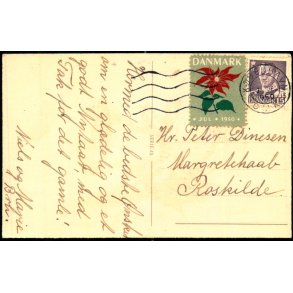 Hermed de bedste Ønsker
om en glædelig og et
godt Nytaar, med
Tak for det gamle!
Niels og Marie
DANMARK
JUL 1950
DANMARK 15
Hr. Peter Dinesen
Margretehaab
Roskilde